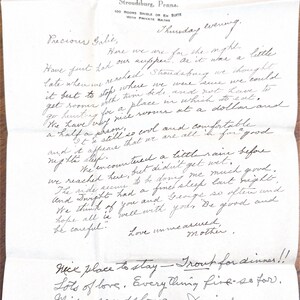 Stroudsburg, Penna.
100 Rooms Single or En Suite
With Private Baths
Thursday evening.
Precious Babe,
Here we are for the night.
Have just had our supper. As it was a little
late when we reached Stroudsburg we thought
it best to stop where we were sure we could
get rooms all three and not have to
go hunting for a place in which to eat.
We have had nice rooms at a dollar and
a half a person.
It is still so cool and comfortable
and it appears that we are all in for good
night's sleep.
We encountered a little rain before
we reached here, but did not get wet.
The ride seems to bring me much good
and Dwight had a fine sleep last night.
We think of you and George so often and
hope all is well with you. Be good and
be careful.
Love unmeasured,
Mother.
Nice place to stay — Trout for dinner!!
Lots of love. Everything fine so far.